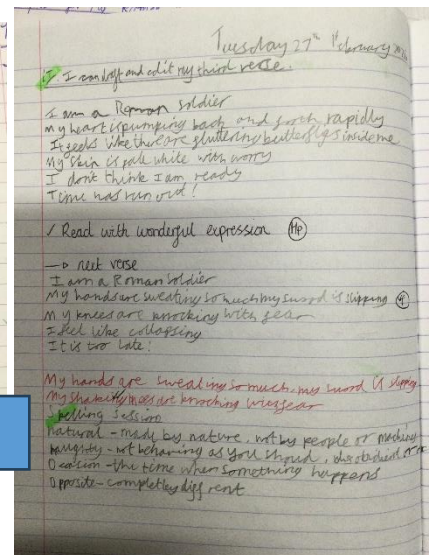 Tuesday 27th February
I can draft and edit my third verse.
I am a Roman soldier
My heart is pumping back and forth rapidly
It feels like there are fluttering butterflys inside me
My skin is pale white with worry
I don't think I am ready
Time has run out!
✓ Read with wonderful expression
→ next verse
I am a Roman soldier
My hands are sweating so much my sword is slipping
My knees are knocking with fear
I feel like collapsing
It is too late!
My hands are sweating so much, my sword is slipping
My shaking knees are knocking with fear
Spelling session
natural - made by nature, not by people or machines
naughty - not behaving as you should, disobedient or
Occasion - the time when something happens
Opposite - completley diffrent